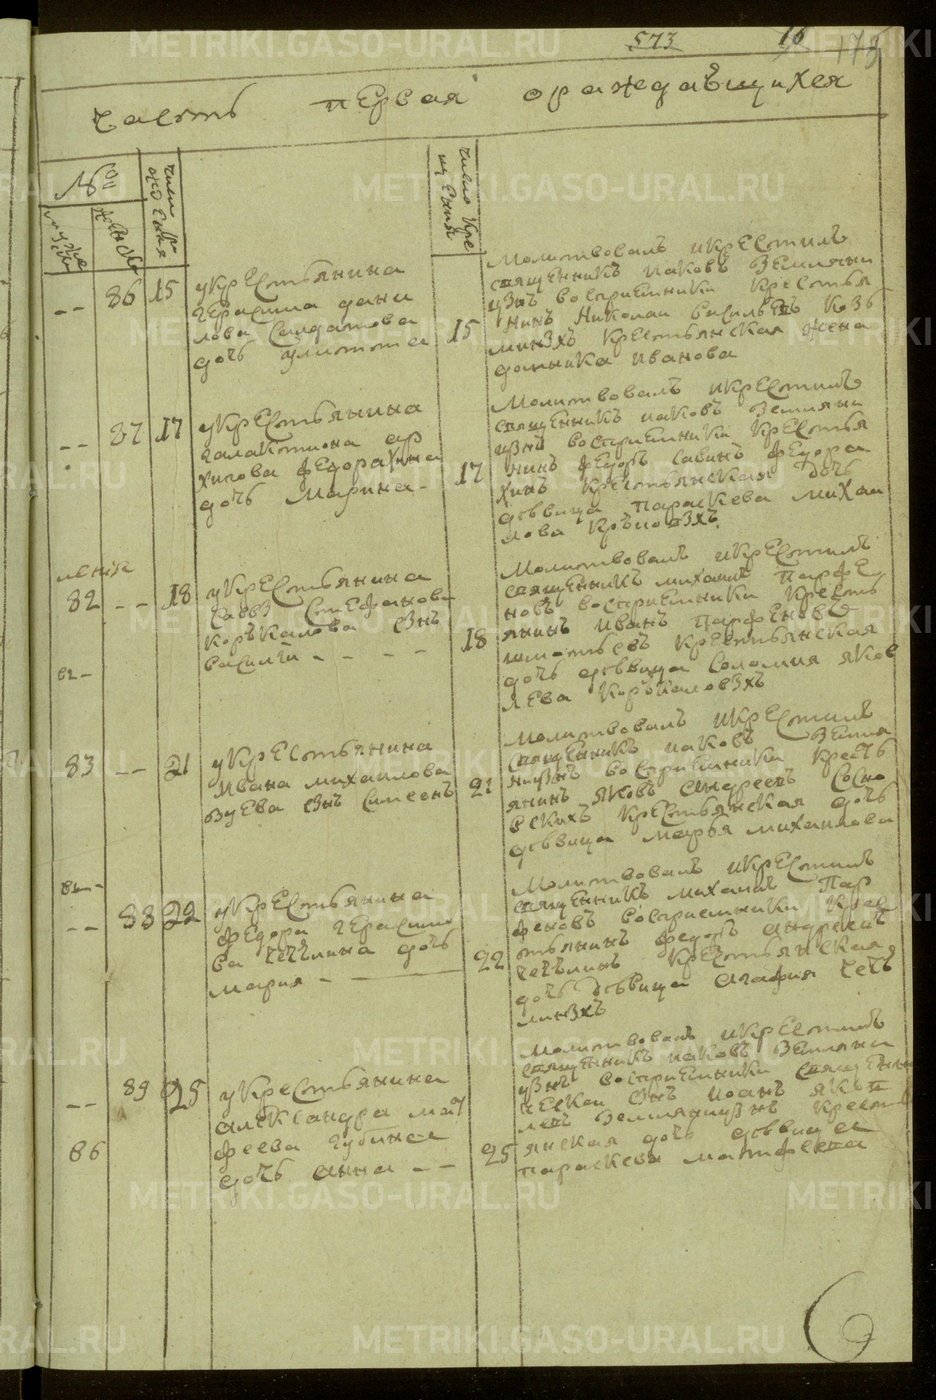 573 16
Часть первая о раждавшихся
№
число рождения
число крещения
мужеска
женска
-- 86 15
у крестьянина
герасима дани
лова Солдатова
дочь улита
15
Молитвовалъ и крестилъ
священникъ иаковъ Земляни
цынъ восприемники крестья
нинъ Николаи васильевъ козь
миныхъ крестьянская жена
домника иванова
-- 87 17
у крестьянина
галактиона ар
хипова федорахина
дочь Марина-
17
Молитвовалъ и крестилъ
священникъ иаковъ Земляни
цынъ восприемники крестья
нинъ федоръ савинъ федора
хинъ крестьянская дочь
девица параскева михаи
лова
82 -- 18
у крестьянина
Савы Стефанова
коръкалова сынъ
василии - - - -
18
Молитвовалъ и крестилъ
священникъ михаилъ парфе
новъ восприемники кресть
янинъ иванъ парфеновъ
крестьянская
дочь девица Соломия яков
лева коръкаловыхъ
83 -- 21
у крестьянина
ивана михаилова
зуева сынъ Симеонъ
21
Молитвовалъ и крестилъ
священникъ иаковъ Земля
ницынъ восприемники кресть
янинъ яковъ андреевъ Сосно
вскихъ крестьянская дочь
девица марья михаилова
-- 88 22
у крестьянина
федора герасимо
ва дочь
мария -
22
Молитвовалъ и крестилъ
священникъ михаилъ Пар
феновъ восприемники крес
тьянинъ федоръ андреевъ
крестьянская
дочь девица агафия
-- 89 25
у крестьянина
александра мат
феева губина
дочь анна --
86
25
Молитвовалъ и крестилъ
священникъ иаковъ Земляни
цынъ восприемники священни
ческои сынъ иоанъ яков
левъ Земляницынъ кресть
янская дочь девица
параскева матфеева